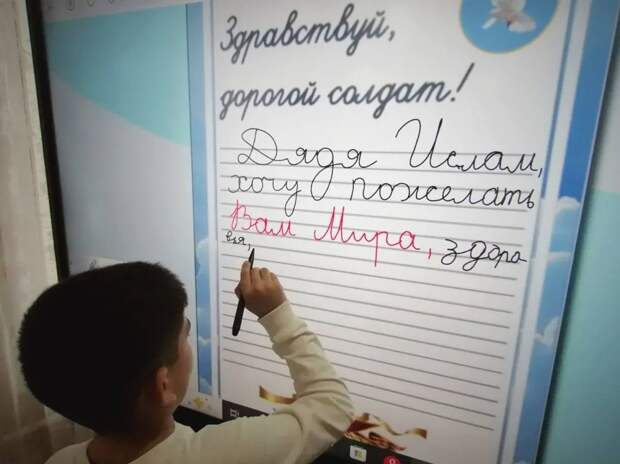 Здравствуй,
дорогой солдат!
Дядя Ислам,
хочу пожелать
Вам Мира, здоро
вья,